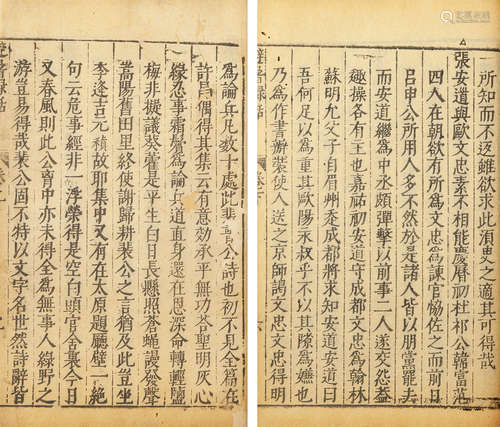 所知而不返雖欲求此須臾之適其可得哉
張安道與歐文忠素不相能慶曆初杜祁公韓富范
四人在朝欲有所為文忠為諫官恊佐之而前日
呂申公所用人多不然於是諸人皆以朋黨罷去
而安道繼為中丞頗彈擊以前事二人遂交怨蓋
趣操各有主也嘉祐初安道守成都文忠為翰林
蘇明允父子自眉州走成都將求知安道安道曰
吾何足以為重其歐陽永叔乎不以其隙為嫌也
乃為作書辦裝使人送之京師謁文忠文忠得明
避暑錄話
為論兵凡數十處此公詩也初不見全篇在
許昌偶得其集云有意効承平無功答聖明灰心
緣忍事霜鬢為論兵道直身還在恩深命轉輕鹽
梅非擬議葵藿是平生白日長懸照蒼蠅謾發聲
嵩陽舊田里終使謝歸耕裴公之言猶及此豈坐
李逢吉元稹故耶集中又有在太原題廳壁一絕
句云危事經非一浮榮得是空白頭官舍集今日
又春風則此公胷中亦未得全為無事人綠野之
游豈易得哉裴公固不特以文字名世然詩辭皆
避暑錄話